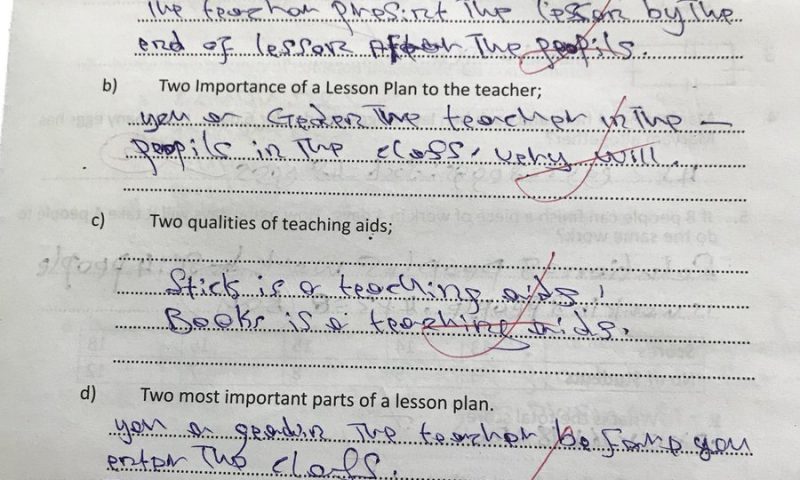 The teacher present The lesson by The
end of lesson After The peopils.
b) Two Importance of a Lesson Plan to the teacher;
you or Geden The teacher in The –
peopils in The class, very will.
c) Two qualities of teaching aids;
Stick is a teaching aids,
Books is a teaching aids.
d) Two most important parts of a lesson plan.
you a geadin The teacher be fore you
enter The class.